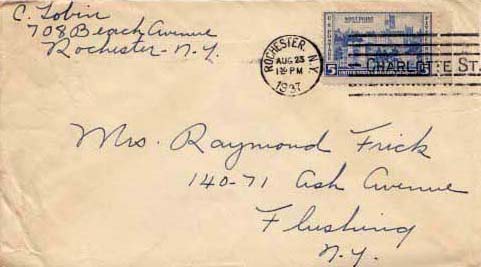 C. Tobin
708 Beach Avenue
Rochester - N.Y.
ROCHESTER, N.Y.
AUG 23
PM
1937
WEST POINT
5
5
CHARLOTTE ST.
Mrs. Raymond Frick
140-71 Ash Avenue
Flushing
N.Y.